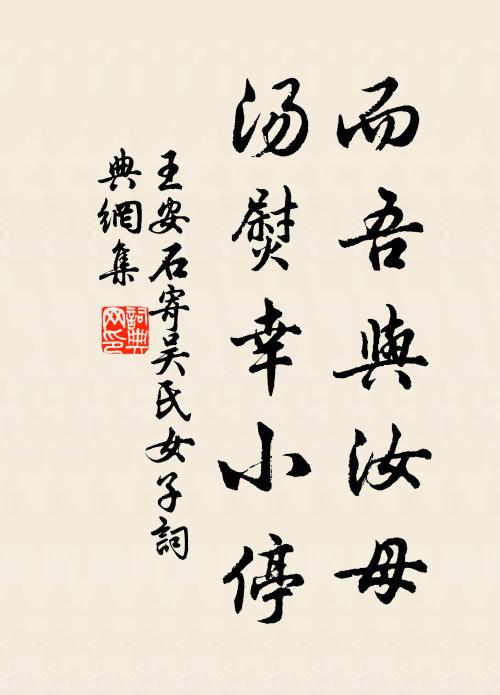 而吾與汝母
湯熨幸小停
王安石寄吴氏女子詞
典網集
詞典
网印